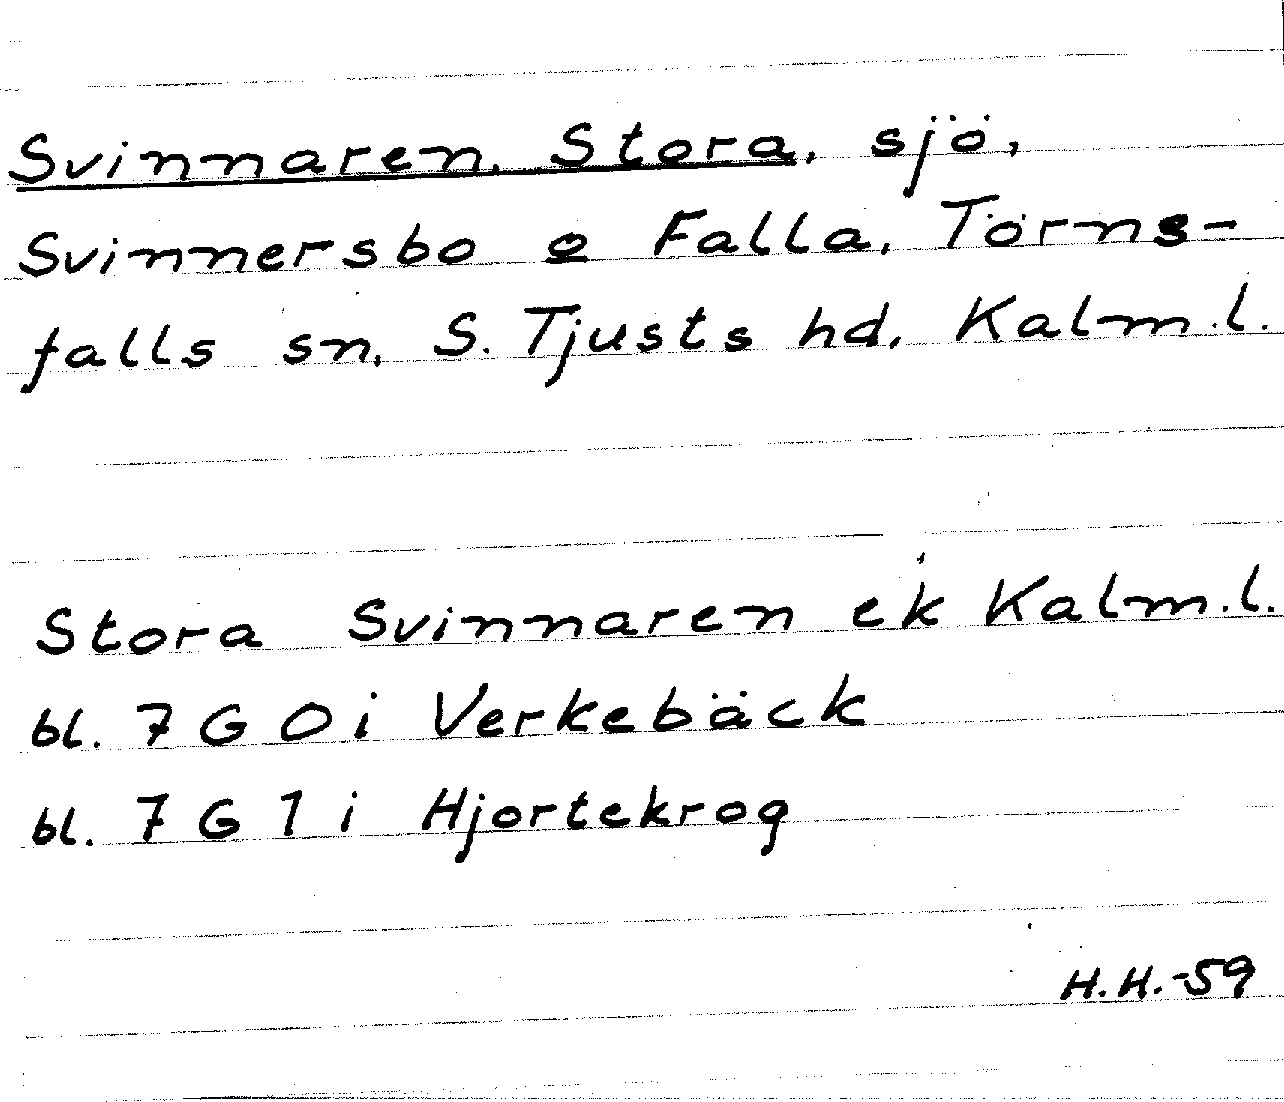 Svinnaren, Stora, sjö,
Svinnersbo o Falla, Törns-
falls sn, S. Tjusts hd, Kalm.l.
Stora Svinnaren ek Kalm.l.
bl. 7 G 0 i Verkebäck
bl. 7 G 1 i Hjortekrog
H.H.-59